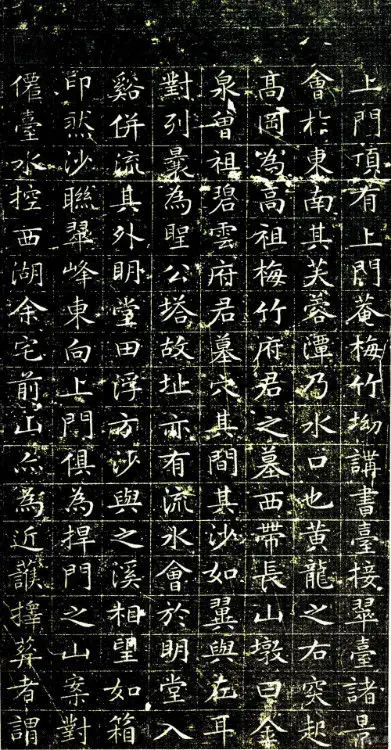 上門頂有上門菴梅竹坳講書臺接翠臺諸景
會於東南其芙蓉潭乃水口也黃龍之右突起
高岡為高祖梅竹府君之墓西帶長山墩曰金
泉曾祖碧雲府君墓穴其間其沙如翼與在耳
對列曩為聖公塔故址亦有流水會於明堂入
谿併流其外明堂田浮方沙與之溪相望如箱
印然沙聯翠峰東向上門俱為捍門之山案對
僊臺水控西湖余宅前山亦為近護擇葬者謂